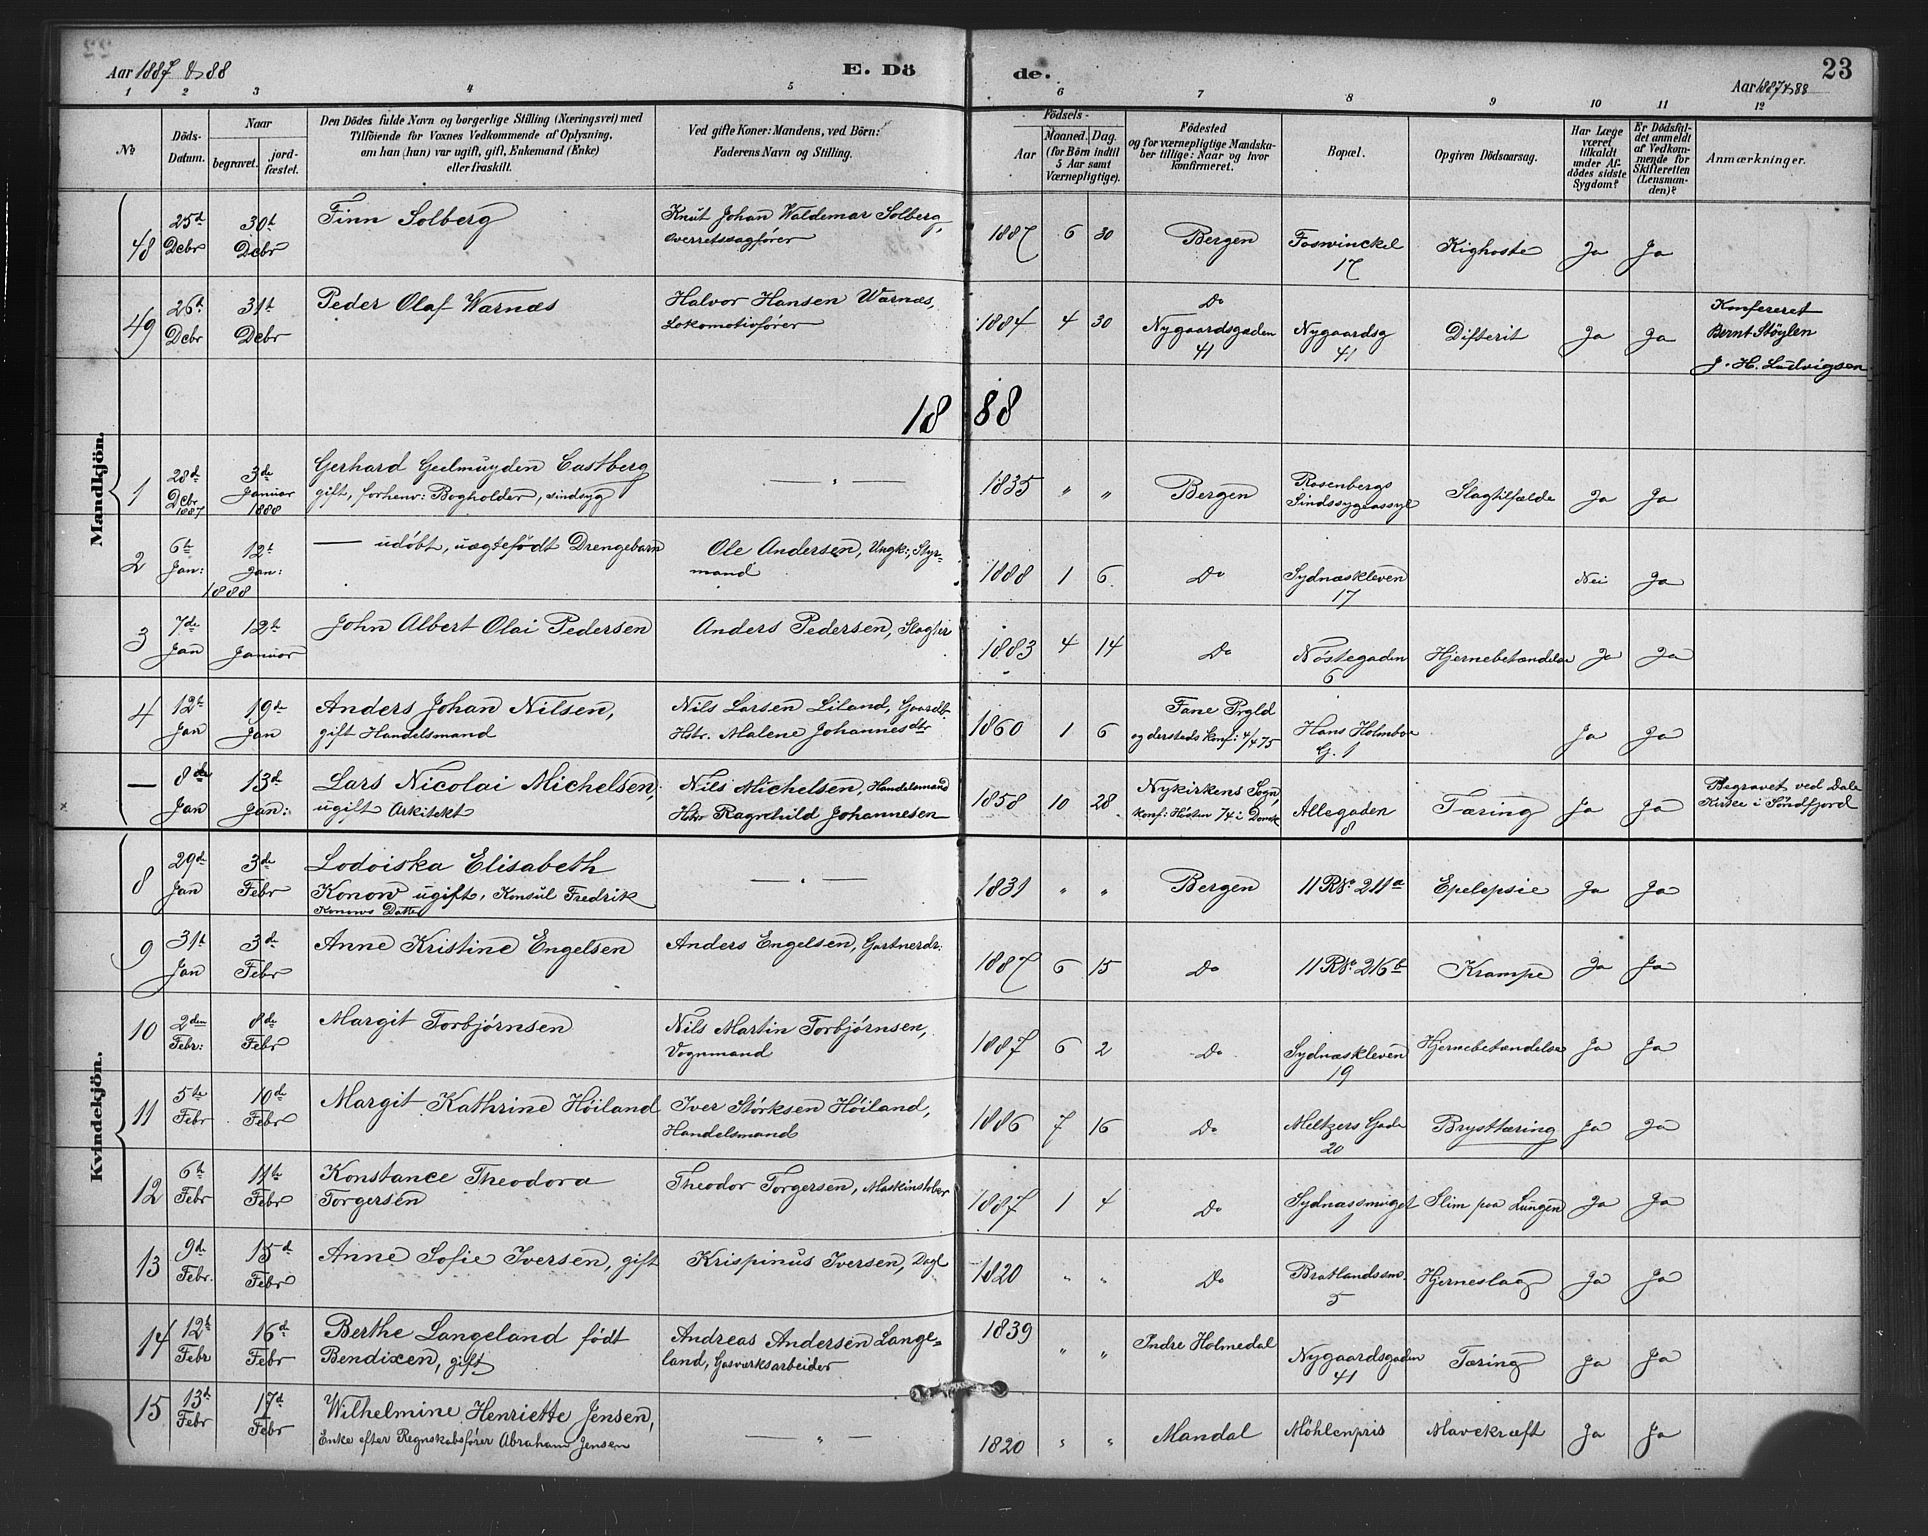 Aar 1887 & 88
E. Dö
de.
23
Aar 1887 & 88
1 2 3 4 5 6 7 8 9 10 11 12
No
Döds-Datum.
Naar
begravet.
jord-fæstet.
Den Dödes fulde Navn og borgerlige Stilling (Næringsvei) med
Tilföiende for Voxnes Vedkommende af Oplysning,
om han (hun) var ugift, gift, Enkemand (Enke)
eller fraskilt.
Ved gifte Koner: Mandens, ved Börn:
Faderens Navn og Stilling.
Födsels-
Aar
Maaned. Dag.
(for Börn indtil
5 Aar samt
Værnepligtige).
Födested
og for værnepligtige Mandska-
ber tillige: Naar og hvor
konfirmeret.
Bopæl.
Opgiven Dödsaarsag.
Har Læge
været
tilkaldt
under Af-
dödes sidste
Sygdom?
Er Dödsfal-
det anmeldt
af Vedkom-
mende for
Skifteretten
(Lensman-
den)?
Anmærkninger.
Mandkjön.
48 25d Debr 30t Debr Finn Solberg Knut Johan Waldemar Solberg, Overretssagfører 1887 6 30 Bergen Foswinckel 17 Kighoste Ja Ja
49 26t Debr 31t Debr Peder Olaf Warnæs Halvor Hansen Warnæs, Lokomotivfører 1884 4 30 Do Nygaardsgaden 41 Nygaardsg 41 Difterit Ja Ja Konfereret Bernt Støylen J. H. Ludvigsen
1888
1 28d Debr 1887 3de Januar 1888 Gerhard Geelmuyden Castberg gift, forhenv: Bogholder, sindsyg — " — 1835 " " Bergen Rosenbergs Sindssygeassyl Slagtilfælde Ja Ja
2 6te Jan: 12t Jan: 1888 — udøbt, uægtefødt Drengebarn Ole Andersen, Ungk:, Styrmand 1888 1 6 Do Sydnæskleven 17 Nei Ja
3 7de Jan 12te Januar John Albert Olai Pedersen Anders Pedersen, Slagter 1883 4 14 Do Nøstegaden 6 Hjernebetændelse Ja Ja
4 12te Jan 19de Jan Anders Johan Nilsen, gift Handelsmand Nils Larsen Liland, Gaardb. Hstr. Malene Johannesdtr 1860 1 6 Fane Prgld og dersteds konf: 4/4 75 Hans Holmboe G. 1 Ja Ja
— 8de Jan 13d Jan: Lars Nicolai Michelsen, ugift Arkitekt Nils Michelsen, Handelsmand Hstr Ragnhild Johannesen 1858 10 28 Nykirkens Sogn, konf: Høsten 74 i Domk Allegaden 8 Tæring Ja Ja Begravet ved Dale Kirke i Søndfjord
Kvindekjön.
8 29de Jan 3de Febr Lodoiska Elisabeth Konow ugift, Konsul Fredrik Konows Datter — " — 1831 " " Bergen 11 R No 211a Epelepsie Ja Ja
9 31t Jan 3de Febr Anne Kristine Engelsen Anders Engelsen, Gartnerdr. 1887 6 15 Do 11 R No 216b Krampe Ja Ja
10 2den Febr: 8de Febr Margit Torbjørnsen Nils Martin Torbjørnsen, Vognmand 1887 6 2 Do Sydnæskleven 19 Hjernebetændelse Ja Ja
11 5te Febr 10de Febr Margit Kathrine Høiland Iver Størksen Høiland, Handelsmand 1886 7 16 Do Meltzers Gade 20 Brysttæring Ja Ja
12 6te Febr 11te Febr Konstance Theodora Torgersen Theodor Torgersen, Maskinstober 1887 1 4 Do Sydnæssmuget Slim paa Lungen Ja Ja
13 9de Febr. 15de Febr Anne Sofie Iversen, gift Krispinus Iversen, Dagl 1820 " " Do Bratlandssm. 5 Hjerneslag Ja Ja
14 12te Febr 16de Febr Berthe Langeland født Bendixen, gift Andreas Andersen Langeland, Gasværksarbeider 1839 " " Indre Holmedal Nygaardsgaden 41 Tæring Ja Ja
15 13d Febr 17d Febr Wilhelmine Henriette Jensen, Enke efter Regnskabsfører Abraham Jensen — " — 1820 " " Mandal Møhlenpris Mavekræft Ja Ja